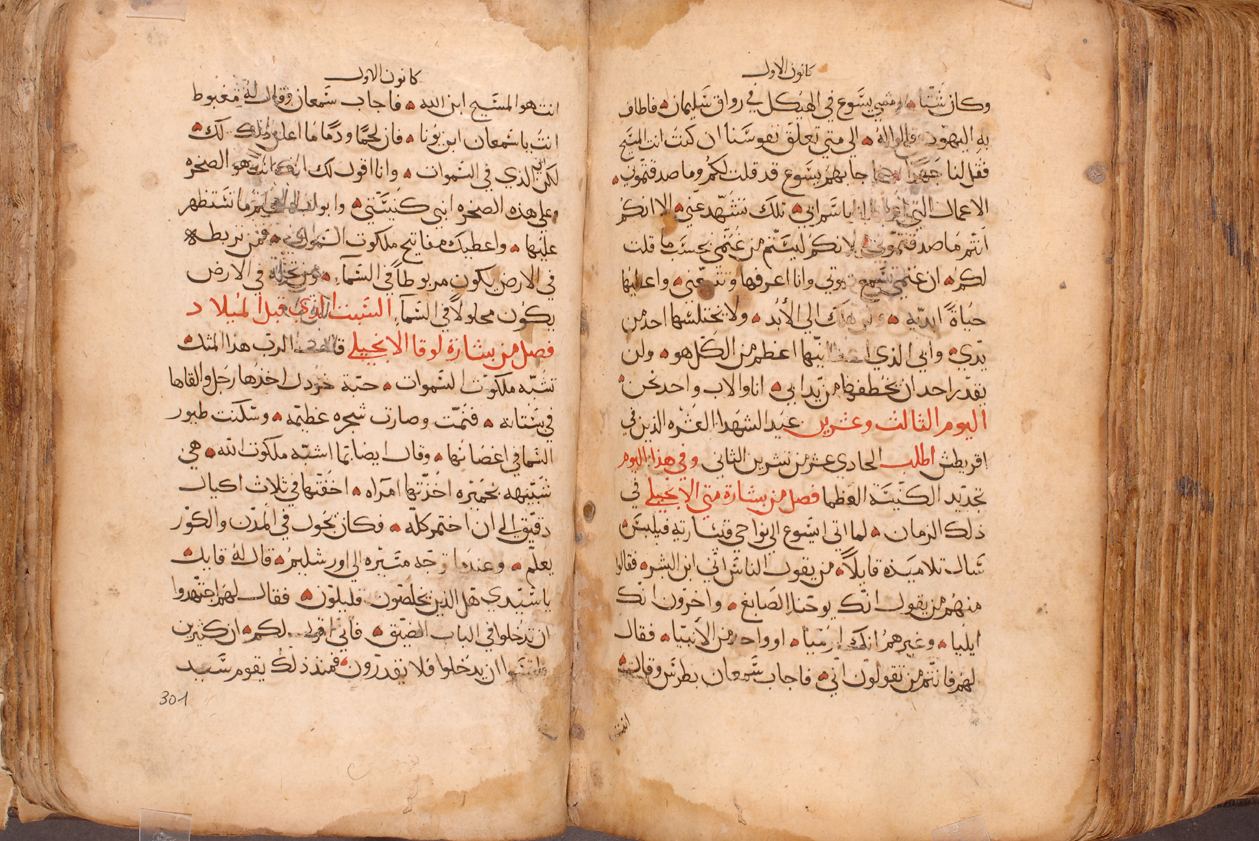 كانون الاول
وكان شتا ويمشي يسوع في الهيكل في رواق سليمان فاطاف
به اليهود وقالوا له الى متى تعلق نفوسنا ان كنت انت المسيح
فقل لنا جهرا اجابهم يسوع قد قلت لكم وما صدقتموني
الاعمال التي باسم ابي تلك تشهد عني الا انكم
انتم ما صدقتموني لانكم لستم من غنمي بحسب ما قلت
لكم ان غنمي تسمع صوتي وانا اعرفها وتتبعني واعطيها
حياة ابدية تهلك الى الابد ولا يختلسها احد من
يدي وابي الذي اعظم من الكل هو ولن
يقدر احد ان يخطفها من يد ابي انا والاب واحد نحن
اليوم الثالث وعشرين عيد الشهدا العشره الذين في
اقريطش اطلب الحادي عشر من تشرين الثاني وفي هذا اليوم
تجديد الكنيسة العظما فصل من بشارة متى الانجيلي في
ذلك الزمان لما اتى يسوع الى نواحي قيسارية فيلبس
سال تلاميذه قايلاً من يقول الناس اني ابن البشر فقالوا
منهم من يقول انك يوحنا الصابغ واخرون انك
ايليا وغيرهم انك ارميا او واحد من الانبيا فقال
لهم فانتم من تقولون اني فاجاب سمعان بطرس وقال
انت
كانون الاول
انت هو المسيح ابن الله فاجاب سمعان وقال له مغبوط
انت يا سمعان ابن يونا فان لحمًا ودمًا ما اعلن ذلك لك
لكن ابي الذي في السموات وانا اقول لك انك انت هو الصخره
وعلى هذه الصخره ابني كنيستي وابواب الجحيم ما تستظهر
عليها واعطيك مفاتيح ملكوت السموات فمن تربطه
في الارض يكون مربوطاً في السما ومن تحله في الارض
يكون محلولاً في السما السبت الذي قبل الميلاد
فصل من بشارة لوقا الانجيلي قال الرب هذا المثل
تشبه ملكوت السموات حبة خردل اخذها رجل والقاها
في بستانه فنمت وصارت شجره عظيمه وسكنت طيور
السما في اغصانها وقال ايضا بما اشبه ملكوت الله هي
شبيهه بخميره اخذتها امراه اخفتها في ثلاث اكيال
دقيق الى ان اختمر كله فكان يجول في المدن والكور
يعلم وعندما وجه مسيره الى اورشليم قال له قايل
يا سيدي هل الذين يخلصون قليلون فقال لهم اجتهدوا
ان تدخلوا في الباب الضيق فاني اقول لكم ان كثيرين
ان يدخلوا فلا يقدرون فمنذ ذلك يقوم سيد
301